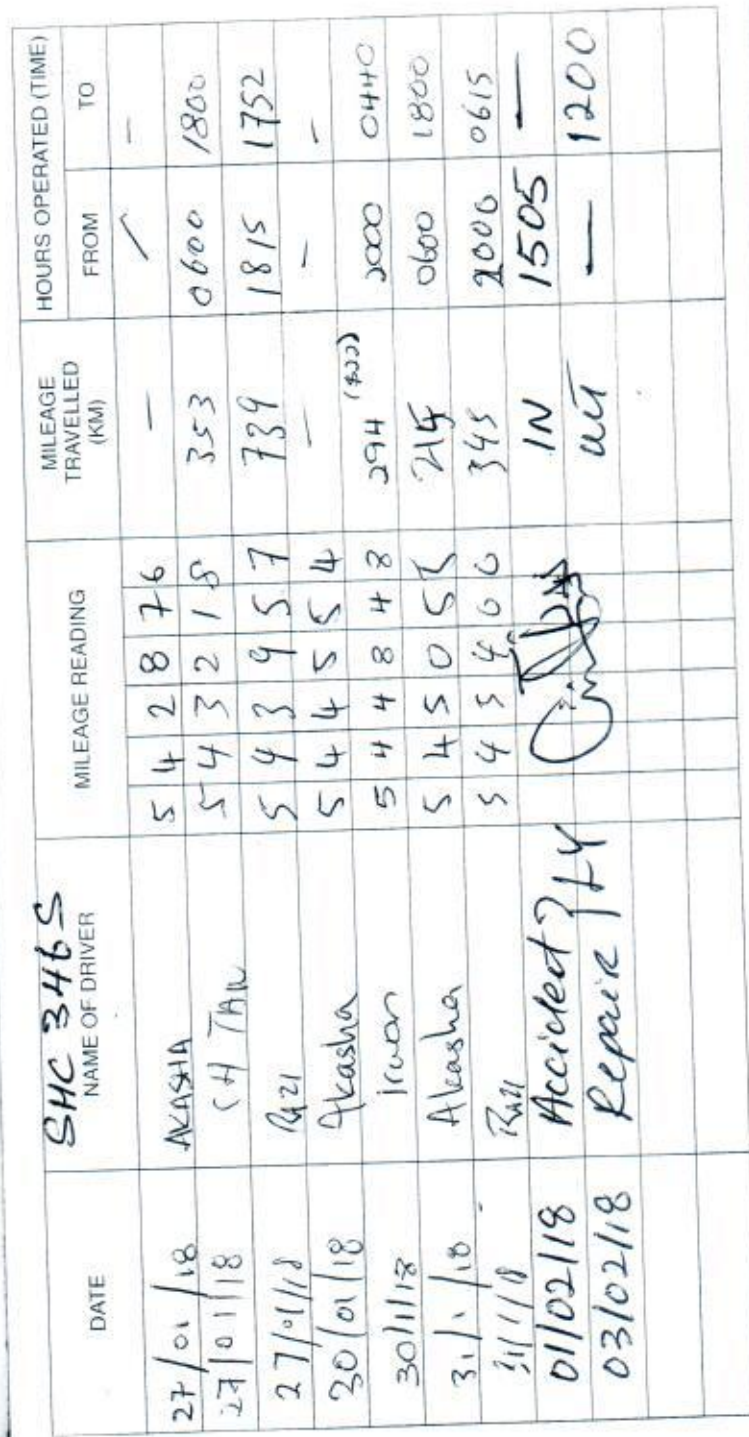 SHC 346S
DATE NAME OF DRIVER MILEAGE READING MILEAGE TRAVELLED (KM) HOURS OPERATED (TIME)
FROM TO
27/01/18 AKASHA 5 4 2 8 7 6 — — —
27/01/18 CH TAN 5 4 3 2 1 8 353 0600 1800
27/01/18 RAZI 5 4 3 9 5 7 739 1815 1752
30/01/18 Akasha 5 4 4 5 5 4 — — —
30/1/18 irwan 5 4 4 8 4 8 294 2000 0440
31/1/18 Akasha 5 4 5 0 5 215 0600 1800
31/1/18 RAZI 5 4 5 4 0 0 345 2000 0615
01/02/18 Accident IN 1505 —
03/02/18 Repair LY out — 1200